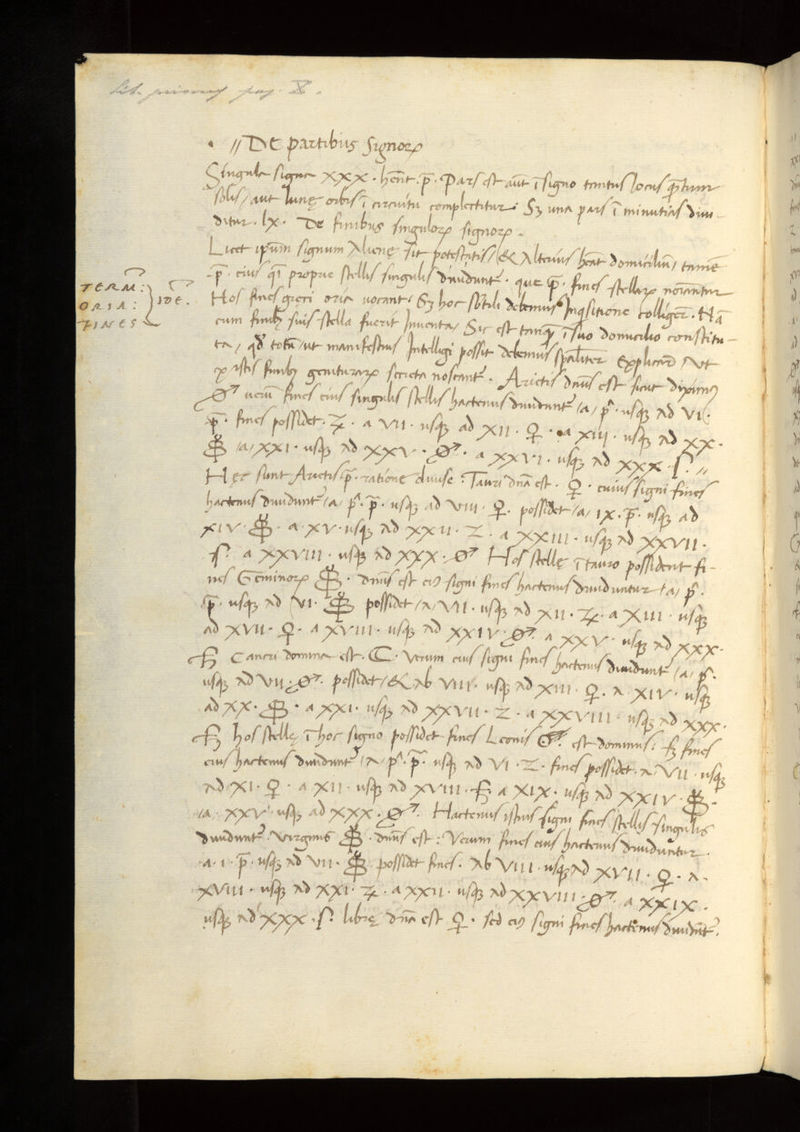 Lib. primus pag. X.
// De partibus signoꝝ
Singula signa XXX. hēnt. p̄. Pars est aūt ī signo tantus locus q̄tum
solis / aut lunę orbis ī circuitu complectitur. Sꝫ una pars ī minutias diui
ditur. lx. De finibus singuloꝝ signoꝝ.
Licet ipsum signum Alienę sit potestatis / & Alterius hēat domicilium / tamē
p̄. eius q̄ proprię stellis singulis diuidunt͛. quę p̄. fines stellaꝝ noīantur
TERM:
ORIA:
FINES
IDE.
Hos fines gręci oria uocant. Sꝫ hoc sbtili debemus Inq̄sitione colligere. Nā
cum finibꝫ suis stella fuerit Inuenta / Sic est tanq̄ ī suo domicilio constitu
ta / qd totū / ut manifestius Intelligi possit debemus spāliter Explicare / Ut
ex istis finibꝫ geniturarꝝ secreta noscant͛. Arietis dn̄us est sicut diximus
♂ uerum fines eius singulis stellis hactenus diuidunt͛ / a / pa. usqꝫ ad VI.
p̄. fines possidet. ♃. a VII. usqꝫ ad XII. ♀. a XIII. usqꝫ ad XX.
☿ / a / XXI. usqꝫ ad XXV. ♂. a XXVI. usqꝫ ad XXX. ♄. //
Hęc sunt Arietis p̄. ratione diuise. Tauri dn̄a est. ♀. cuius signi fines
hactenus diuidunt͛ / a / pa. p̄. usqꝫ ad VIII. ♀. possidet / a / IX. p̄. usqꝫ ad
XIV. ☿. a XV. usqꝫ ad XXII. ♃. a XXIII. usqꝫ ad XXVII.
♄. a XXVIII. usqꝫ ad XXX. ♂ Hos stellę ī tauro possident fi-
nes Geminoꝝ ☿. dn̄us est cuꝰ signi fines hactenus diuiduntur / a / pa.
p̄. usqꝫ ad VI. ☿ possidet / a / VII. usqꝫ ad XII. ♃. a XIII. usqꝫ
ad XVII. ♀. a XVIII. usqꝫ ad XXIV. ♂ a XXV. usqꝫ ad XXX.
♄ Cancri domina est. ☾. Verum eius signi fines hactenus diuidunt͛ / a / pa.
usqꝫ ad VII. ♂. possidet / & Ab VIII. usqꝫ ad XIII. ♀. a XIV. usqꝫ
ad XX. ☿. a XXI. usqꝫ ad XXVII. ♃. a XXVIII. usqꝫ ad XXX.
♄ hos stellę ī hoc signo possidet fines Leonis est dominus. sꝫ fines
eius hactenus diuidunt͛ / a / pa. p̄. usqꝫ ad VI. ♃. fines possidet. a. VII. usqꝫ
ad XI. ♀. a XII. usqꝫ ad XVIII. ♄ a XIX. usqꝫ ad XXIV. ☿.
/ a. XXV. usqꝫ ad XXX. ♂. Hactenus istius signi fines stellis singulis
diuidunt͛. Virginis ☿. dn̄us est: Verum fines eius hactenus diuiduntur.
a. I. p̄. usqꝫ ad VII. ☿. possidet fines. Ab VIII. usqꝫ ad XVII. ♀. a.
XVIII. usqꝫ ad XXI. ♃. a XXII. usqꝫ ad XXVIII. ♂ a XXIX.
usqꝫ ad XXX. ♄. librę dn̄a est ♀. sed cuꝰ signi fines hactenus diuidūt͛.